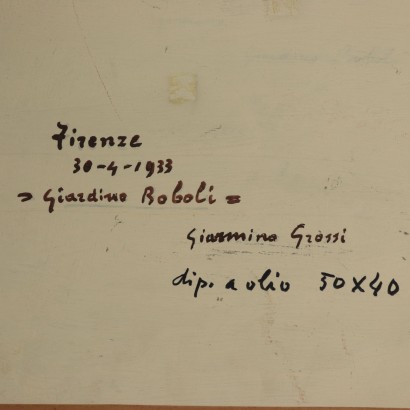 Firenze
30-4-1933
= Giardino Boboli =
Giarmino Grossi
dip. a olio 50X40